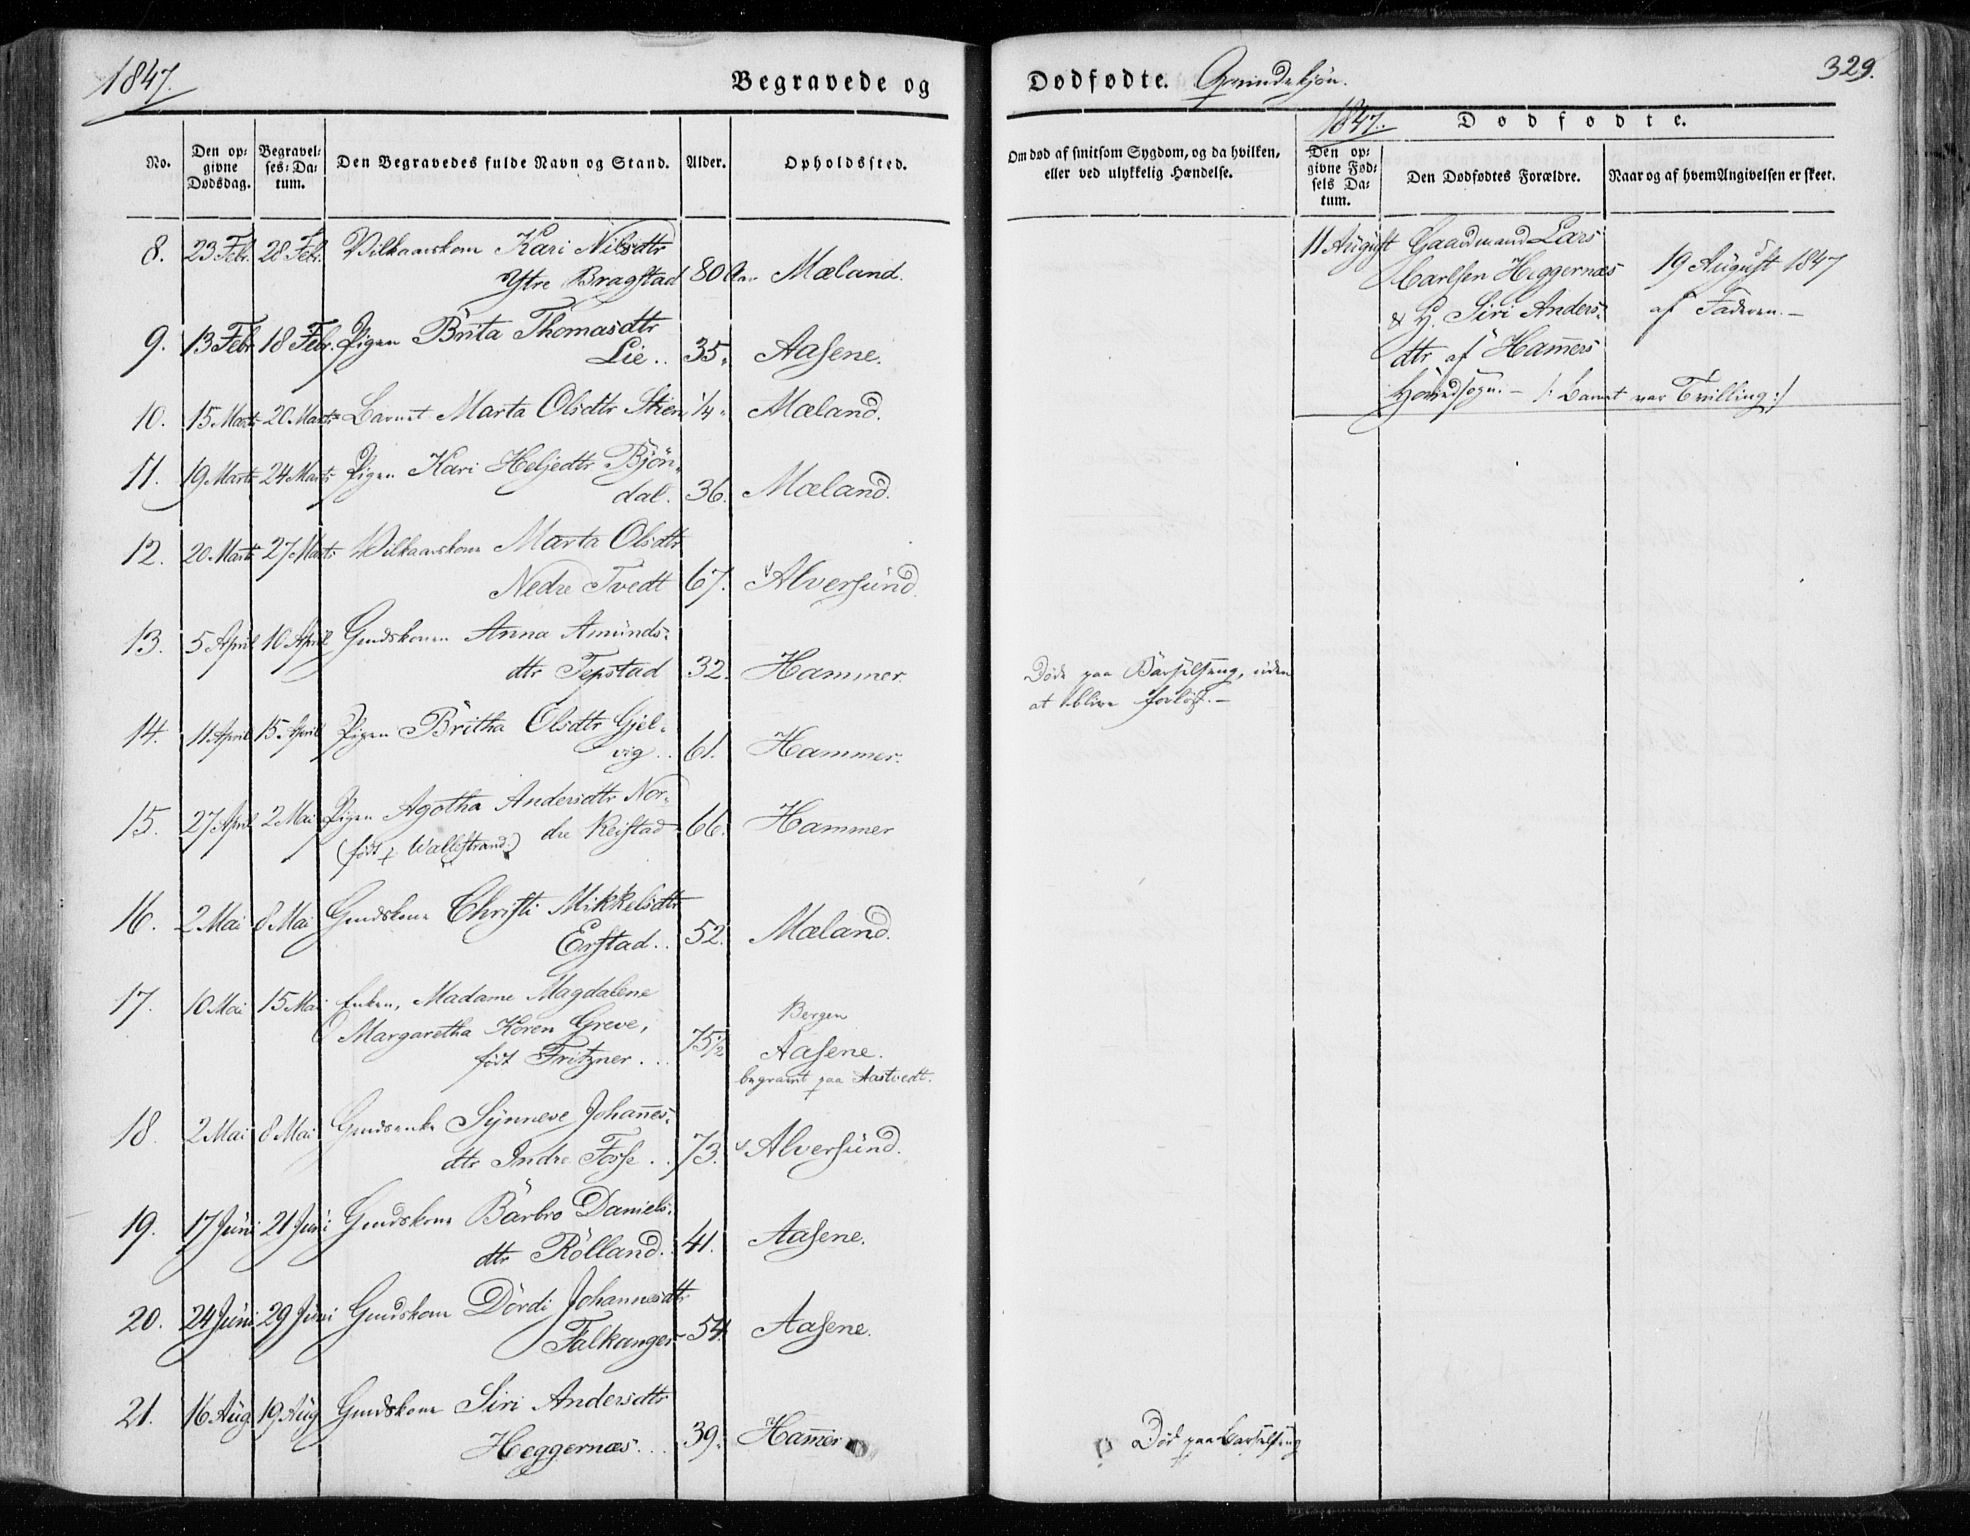 1847.
Begravede og
Dødfødte. Qvindekjøn.
329.
No.
Den opgivne Dødsdag.
Begravelses-Datum.
Den Begravedes fulde Navn og Stand.
Alder.
Opholdssted.
Om død af smitsom Sygdom, og da hvilken,
eller ved ulykkelig Hændelse.
1847.
Dødfødte.
Den opgivne Fødsels Datum.
Den Dødfødtes Forældre.
Naar og af hvem Angivelsen er skeet.
8. 23 Febr. 28 Febr. Vilkaarskone Kari Nilsdtr
Ytre Bragstad 80 Mæland.
9. 13 Febr 18 Febr. Pigen Brita Thomasdtr
Lie.. 35. Aasene.
10. 15 Marts 20 Marts Barnet Marta Olsdtr Steen 1/4. Mæland.
11. 19 Marts 24 Marts Pigen Kari Heljedtr Bjön-
dal. 36. Mæland.
12. 20 Marts 27 Marts Vilkaarskone Marta Olsdtr
Nedre Tvedt 67. Alversund.
13. 5 April 10 April Gmdskonen Anna Amunds-
dtr Tepstad 32. Hammer.
Døde paa Barselseng, uden
at blive forløst.-
14. 11 April 15 April Pigen Britha Olsdtr Gjel-
vig.. 61. Hammer.
15. 27 April 2 Mai Pigen Agotha Andersdtr Nor-
(født Wallestrand.) dre Reistad 66. Hammer
16. 2 Mai 8 Mai Gmdskone Christi Mikkelsdtr
Erstad.. 52. Mæland.
17. 10 Mai 15 Mai Enken, Madame Magdalene
Margaretha Koren Greve,
født Fritzner... 75 1/2
Bergen
Aasene.
begravet paa Aastvedt.
18. 2 Mai 8 Mai Gmdsenke Synneve Johannes-
dtr Indre Fosse.. 73. Alversund.
19. 17 Juni 21 Juni Gmdskone Barbro Daniels-
dtr Rölland.. 41. Aasene.
20. 24 Juni 29 Juni Gmdskone Dördi Johannesdtr
Falkanger 54. Aasene.
21. 16 Aug. 19 Aug Gmdskone Siri Andersdtr
Heggernæs... 39. Hammer
Død paa Barselseng
11 August Gaardmand Lars
Carlsen Heggernæs
& H. Siri Anders-
dtr af Hamers
Hovedsogn.- /: Barnet var Tvilling:/
19 August 1847
af Faderen.-